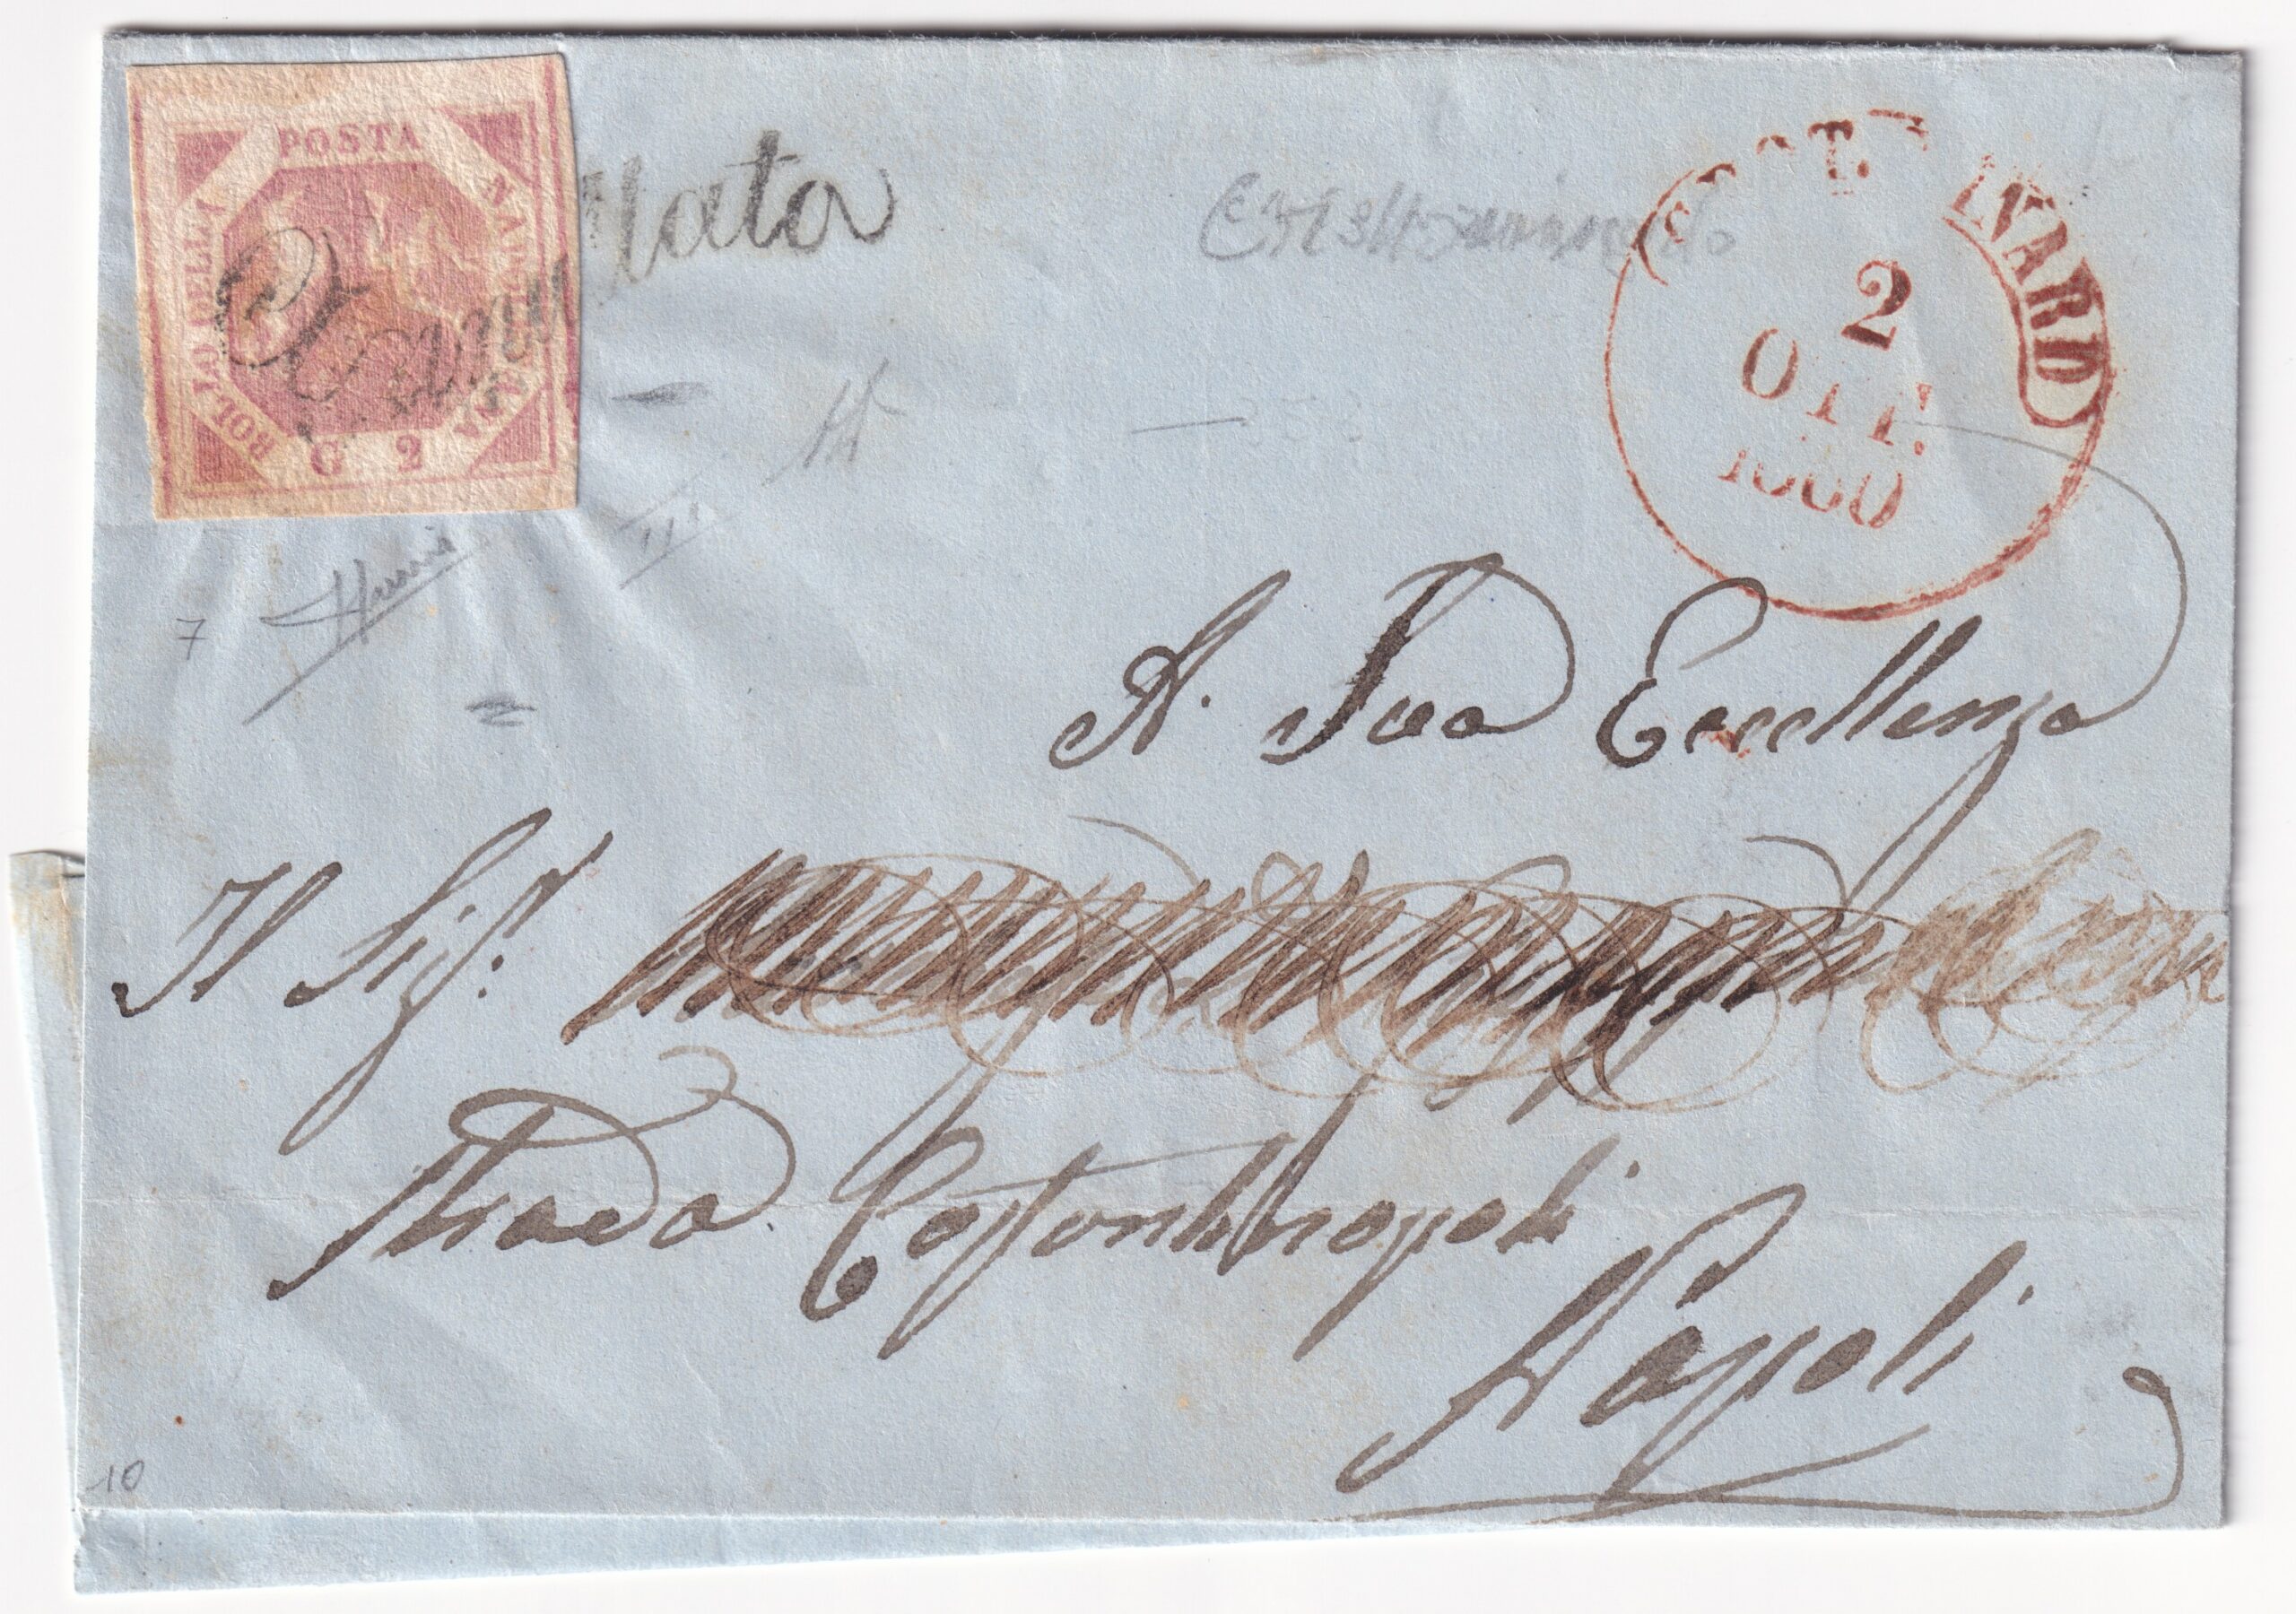 BOLLO DELLA POSTA NAPOLETANA
G 2
Annullata
2
OTT.
1860
A. Sua Eccellenza
Il Sigr.
Strada Costantinopoli
Napoli
7
10